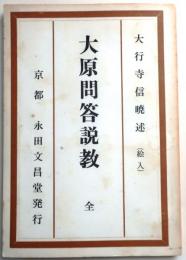 大行寺信曉述（絵入）
大原問答説教 全
京都 永田文昌堂発行